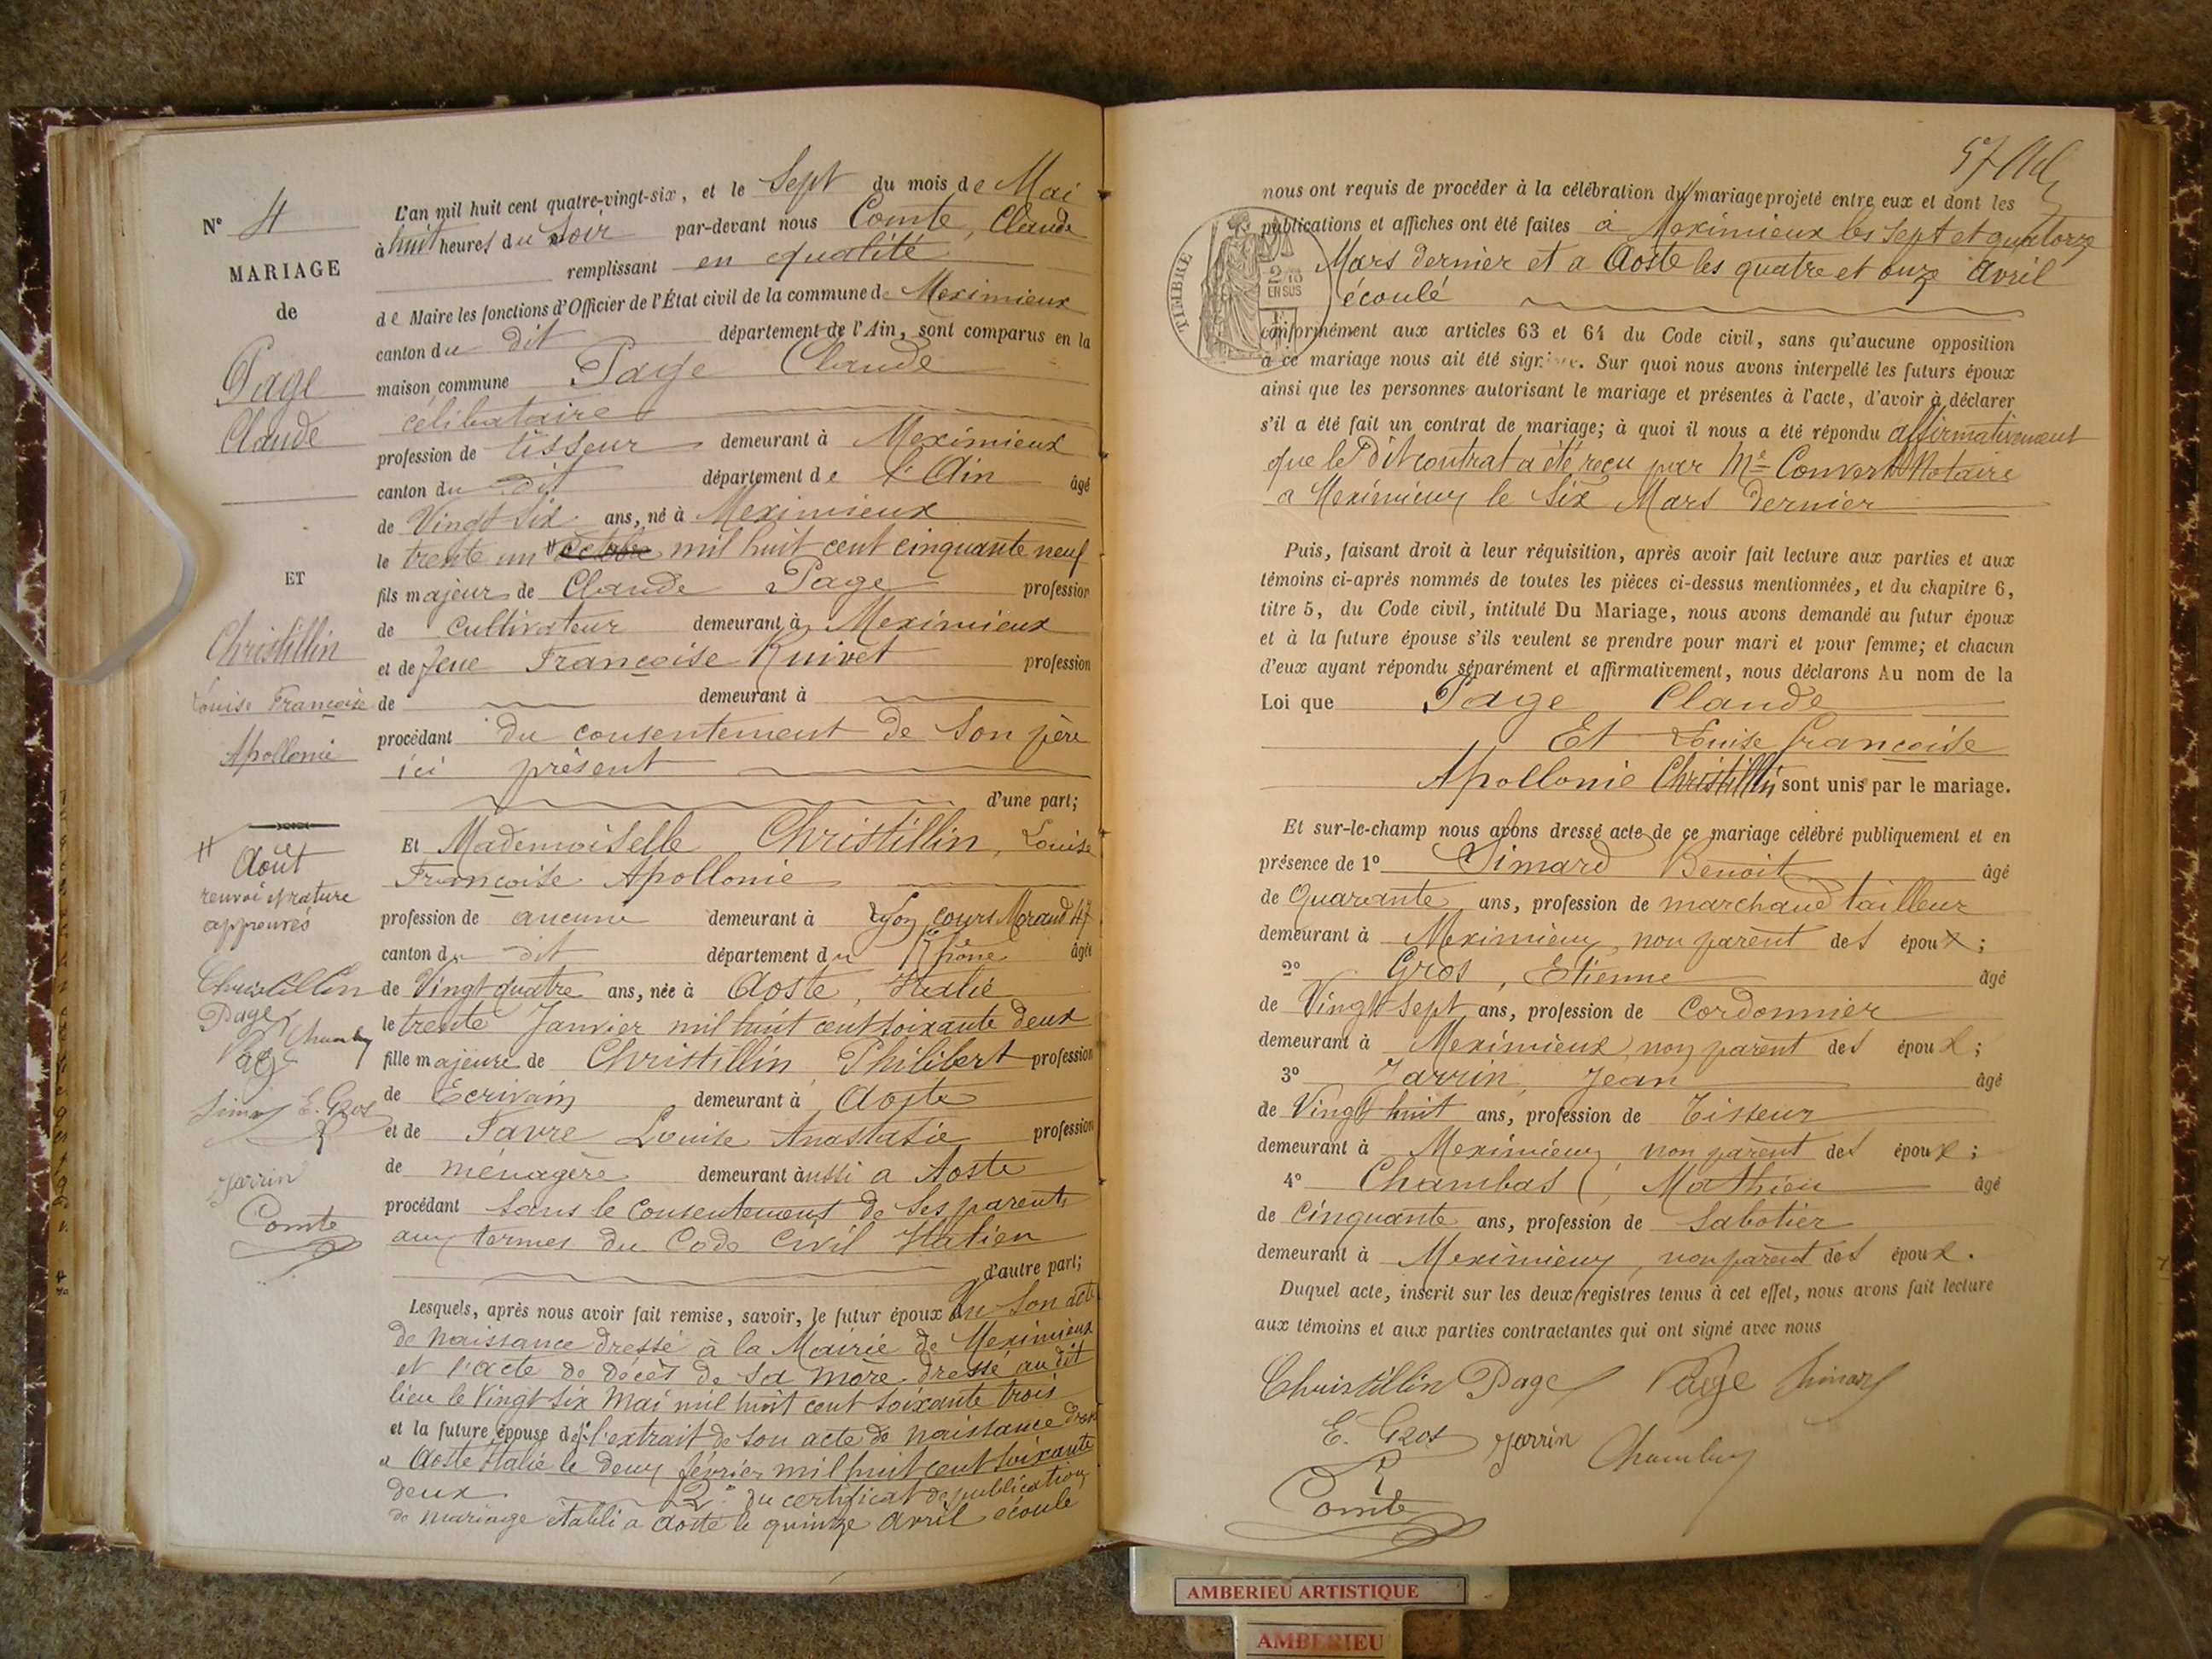 N° 4
MARIAGE
de
Page
Claude
ET
Christillin
Louise Françoise
Apollonie
# Août
renvoi et rature
approuvés
Christillin
Page
Chambas
Page
Simard E. Gros
Jarrin
Comte
L'an mil huit cent quatre-vingt-six, et le Sept du mois de Mai
à huit heures du soir par-devant nous Comte, Claude
remplissant en qualité
de Maire les fonctions d'Officier de l'État civil de la commune de Meximieux
canton du dit département de l'Ain, sont comparus en la
maison commune Page Claude
célibataire
profession de tisseur demeurant à Meximieux
canton du dit département de l'Ain âgé
de Vingt Six ans, né à Meximieux
le trente un # Octobre mil huit cent cinquante neuf
fils majeur de Claude Page profession
de cultivateur demeurant à Meximieux
et de feue Françoise Ruivet profession
de demeurant à
procédant du consentement de Son père
ici présent
d'une part;
Et Mademoiselle Christillin, Louise
Françoise Apollonie
profession de aucune demeurant à Lyon cours Morand 47
canton du dit département du Rhône âgée
de Vingt quatre ans, née à Aoste, Italie
le trente Janvier mil huit cent soixante deux
fille majeure de Christillin Philibert profession
de Ecrivain demeurant à Aoste
et de Favre Louise Anastasie profession
de ménagère demeurant aussi a Aoste
procédant sans le consentement de Ses parents
aux termes du Code Civil Italien
d'autre part;
Lesquels, après nous avoir fait remise, savoir, le futur époux de Son acte
de naissance dressé à la Mairie de Meximieux
et l'acte de décès de Sa mère dressé au dit
lieu le Vingt Six Mai mil huit cent soixante trois
et la future épouse de 1° l'extrait de Son acte de naissance dressé
a Aoste Italie le deux février mil huit cent soixante
deux 2° du certificat de publication
de mariage établi a Aoste le quinze avril écoulé
57
nous ont requis de procéder à la célébration du mariage projeté entre eux et dont les
publications et affiches ont été faites à Meximieux les Sept et quatorze
Mars dernier et a Aoste les quatre et onze avril
écoulé
TIMBRE
2/10
EN SUS
conformément aux articles 63 et 64 du Code civil, sans qu'aucune opposition
à ce mariage nous ait été signifiée. Sur quoi nous avons interpellé les futurs époux
ainsi que les personnes autorisant le mariage et présentes à l'acte, d'avoir à déclarer
s'il a été fait un contrat de mariage; à quoi il nous a été répondu affirmativement
que le Dit contrat a été reçu par Me Convert Notaire
a Meximieux le Six Mars dernier
Puis, faisant droit à leur réquisition, après avoir fait lecture aux parties et aux
témoins ci-après nommés de toutes les pièces ci-dessus mentionnées, et du chapitre 6,
titre 5, du Code civil, intitulé Du Mariage, nous avons demandé au futur époux
et à la future épouse s'ils veulent se prendre pour mari et pour femme; et chacun
d'eux ayant répondu séparément et affirmativement, nous déclarons Au nom de la
Loi que Page Claude
Et Louise françoise
Apollonie Christillin sont unis par le mariage.
Et sur-le-champ nous avons dressé acte de ce mariage célébré publiquement et en
présence de 1° Simard Benoit âgé
de Quarante ans, profession de marchand tailleur
demeurant à Meximieux non parent des époux;
2° Gros, Etienne âgé
de Vingt Sept ans, profession de Cordonnier
demeurant à Meximieux non parent des époux;
3° Jarrin, Jean âgé
de Vingt huit ans, profession de Tisseur
demeurant à Meximieux non parent des époux;
4° Chambas, Mathieu âgé
de Cinquante ans, profession de Sabotier
demeurant à Meximieux, non parent des époux.
Duquel acte, inscrit sur les deux registres tenus à cet effet, nous avons fait lecture
aux témoins et aux parties contractantes qui ont signé avec nous
Christillin Page Page Simard
E. Gros Jarrin Chambas
Comte
AMBERIEU ARTISTIQUE
AMBERIEU